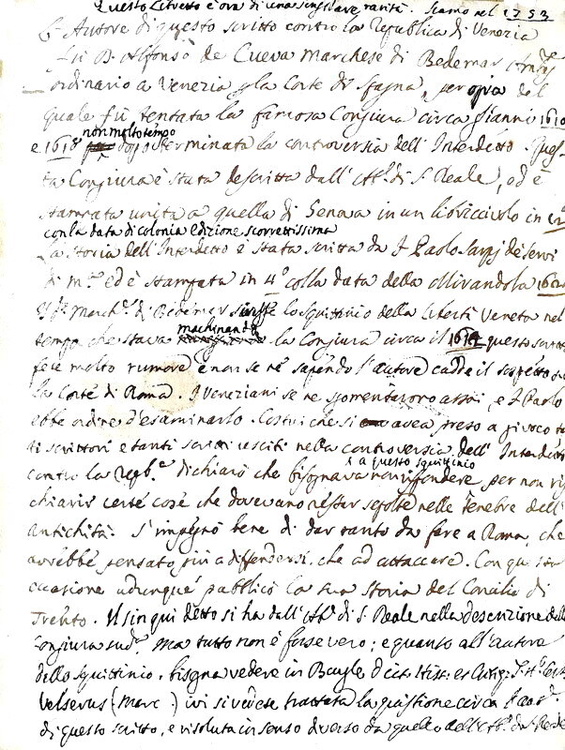 Questo Libretto è ora di una singolare rarità. Siamo nel 1753
L'Autore di questo scritto contro la Republica di Venezia
fu D. Alfonso de Cueva Marchese di Bedemar
ordinario a Venezia la Corte di Spagna, per opra del
quale fù tentata la famosa Congiura circa gl'anni 1610
e 1618 non molto tempo dopo terminata la controversia dell'Interdetto. Ques-
ta Congiura è stata descritta dall'Ab.e di S. Reale, ed è
stampata unita a quella di Genova in un libricciuolo in
con la data di colonia edizione scorrettissima
La storia dell'Interdetto è stata scritta da F. Paolo Sarpj de Servi
di M.e ed è stampata in 4º colla data della Mirandola
March.e di Bedemar scrisse lo Squittinio della libertà Veneta nel
tempo che stava machinando la Congiura circa il questo scritto
fece molto rumore e non se ne sapendo l'autore cadde il sospetto
la Corte di Roma. I Veneziani se ne sgomentarono assai, e F. Paolo
ebbe ordine d'esaminarlo. Costui che si avea preso a giuoco
di scrittori e tanti scritti usciti nella controversia dell'Interdetto
contro la Repb.a dichiarò che bisognava non rispondere a questo squittinio per non
chiarir certe cose che dovevano restar sepolte nelle tenebre dell'
antichità. S'impegnò bene di dar tanto da fare a Roma, che
avrebbe pensato più a diffendersi, che ad attaccare. Con questa
occasione adunque publicò la sua Storia del Concilio di
Trento. Il sin qui detto si ha dall'Ab.e di S. Reale nella descrizione della
Congiura sud.a Ma tutto non è forse vero; e quanto all'autore
dello squittinio, bisogna vedere in Bayle
Velserus (Marc) ivi si vedese trattata la quistione circa l'
di questo scritto, e risoluta in senso diverso da quello dell'Ab.e di S. Reale